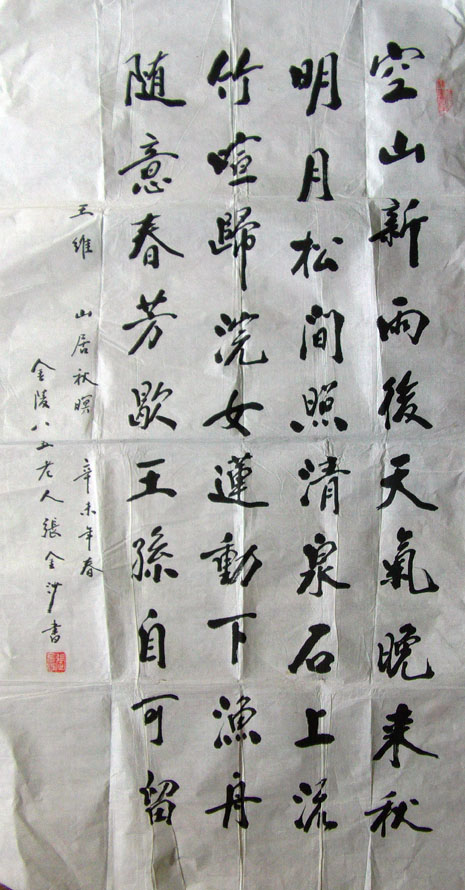 空山新雨後天氣晚来秋
明月松间照清泉石上流
竹喧歸浣女蓮動下漁舟
随意春芳歇王孫自可留
王維 山居秋暝 辛未年春
金陵八五老人張金沙書